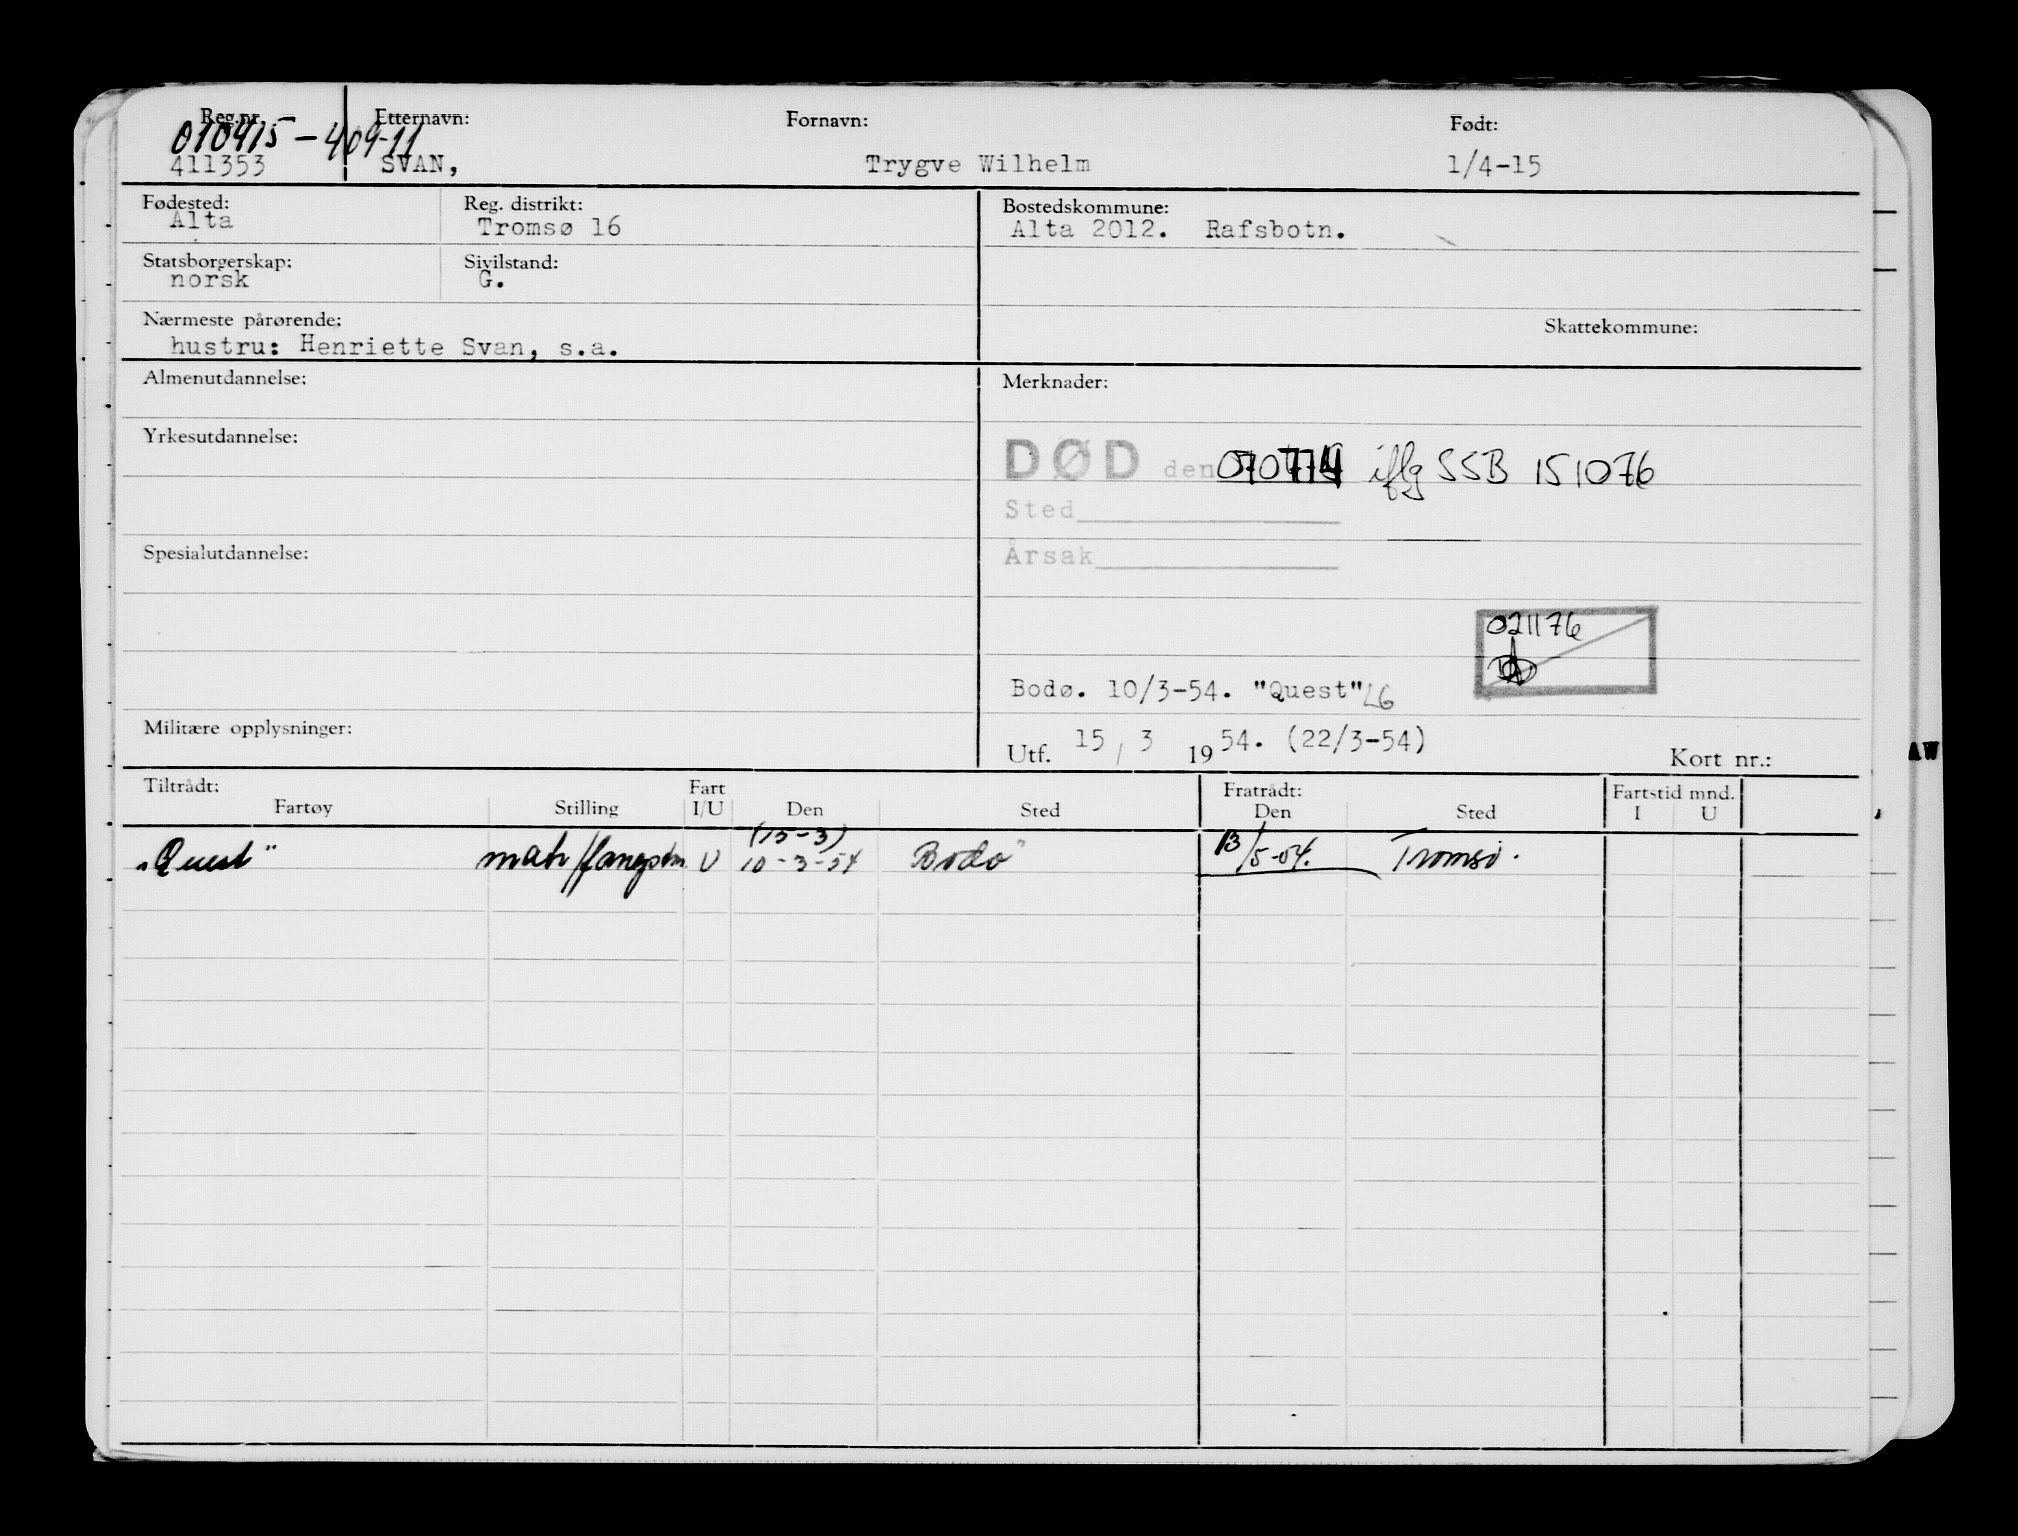 Reg.nr. Etternavn: Fornavn: Født:
010415-409-11
411353 SVAN, Trygve Wilhelm 1/4-15
Fødested: Reg. distrikt: Bostedskommune:
Alta Tromsø 16 Alta 2012. Rafsbotn.
Statsborgerskap: Sivilstand:
norsk G.
Nærmeste pårørende: Skattekommune:
hustru: Henriette Svan, s.a.
Almenutdannelse: Merknader:
Yrkesutdannelse:
DØD den iflg SSB 151076
Sted
Årsak
Spesialutdannelse:
021176
Bodø. 10/3-54. "Quest" LG
Militære opplysninger:
Utf. 15 / 3 1954. (22/3-54) Kort nr.:
Tiltrådt: Fart Fratrådt: Fartstid mnd.
Fartøy Stilling I/U Den Sted Den Sted I U
(15-3)
"Quest" matr/fangstm U 10-3-54 Bodø 13/5-54. Tromsø.
AW